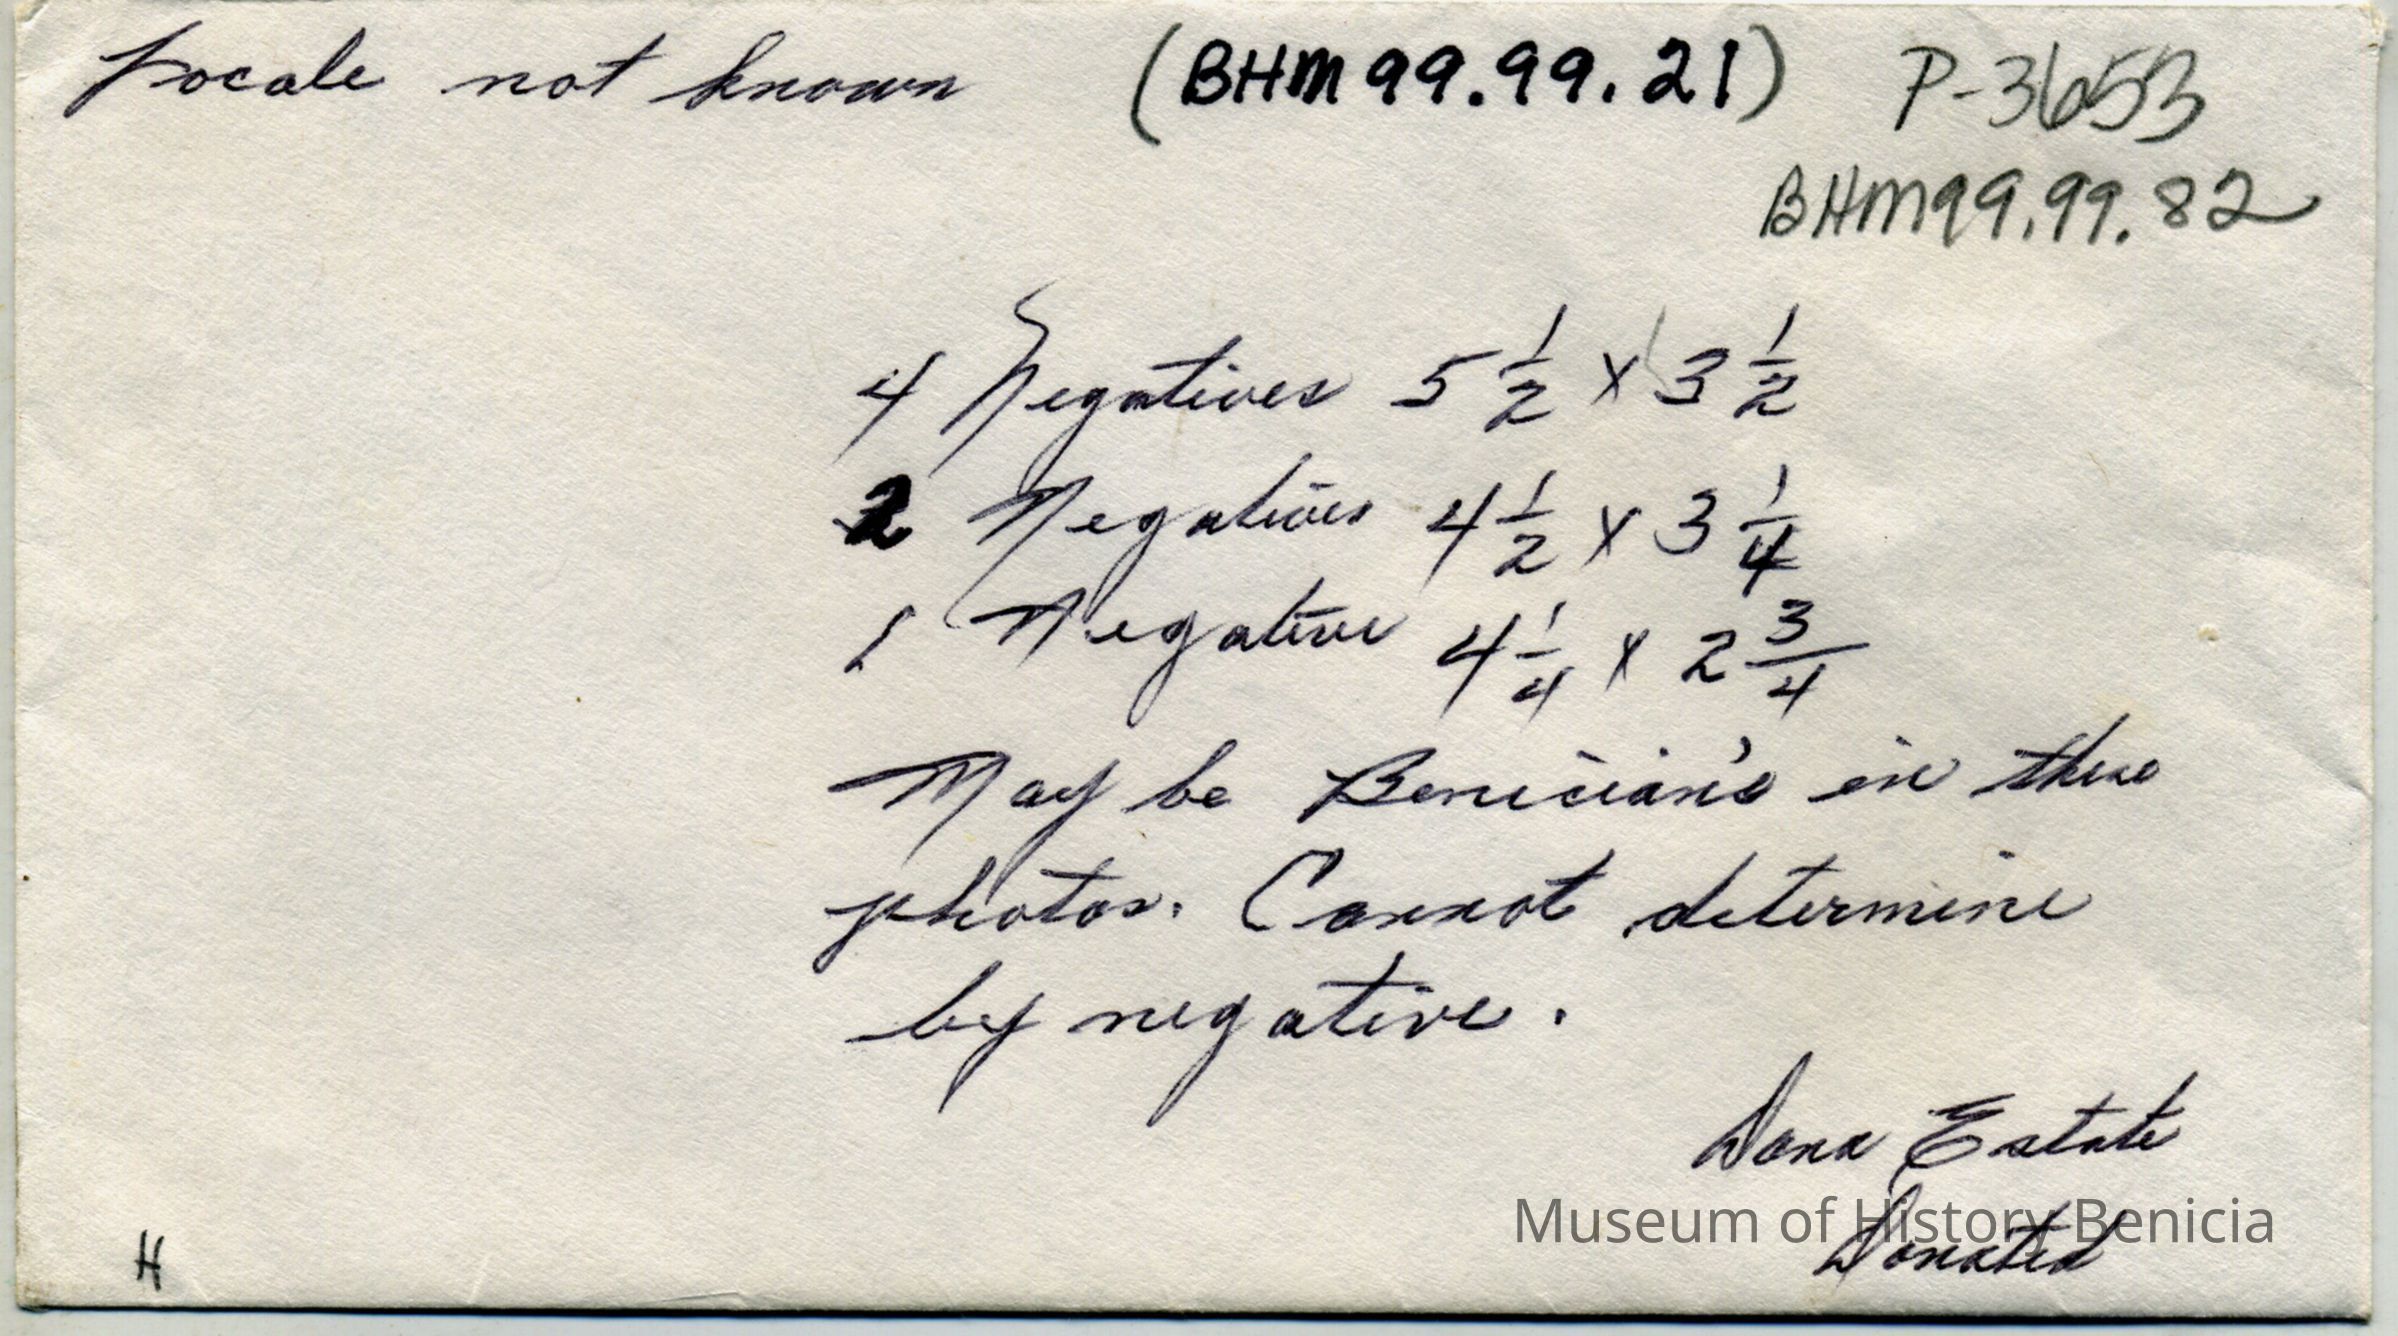 Locale not known (BHM 99.99.21) P-3653
BHM99.99.82
4 Negatives 5 1/2 x 3 1/2
2 Negatives 4 1/2 x 3 1/4
1 Negative 4 1/4 x 2 3/4
May be Benician's in these
photos. Cannot determine
by negative.
Dana Estate
Museum of History Benicia
Donated
H